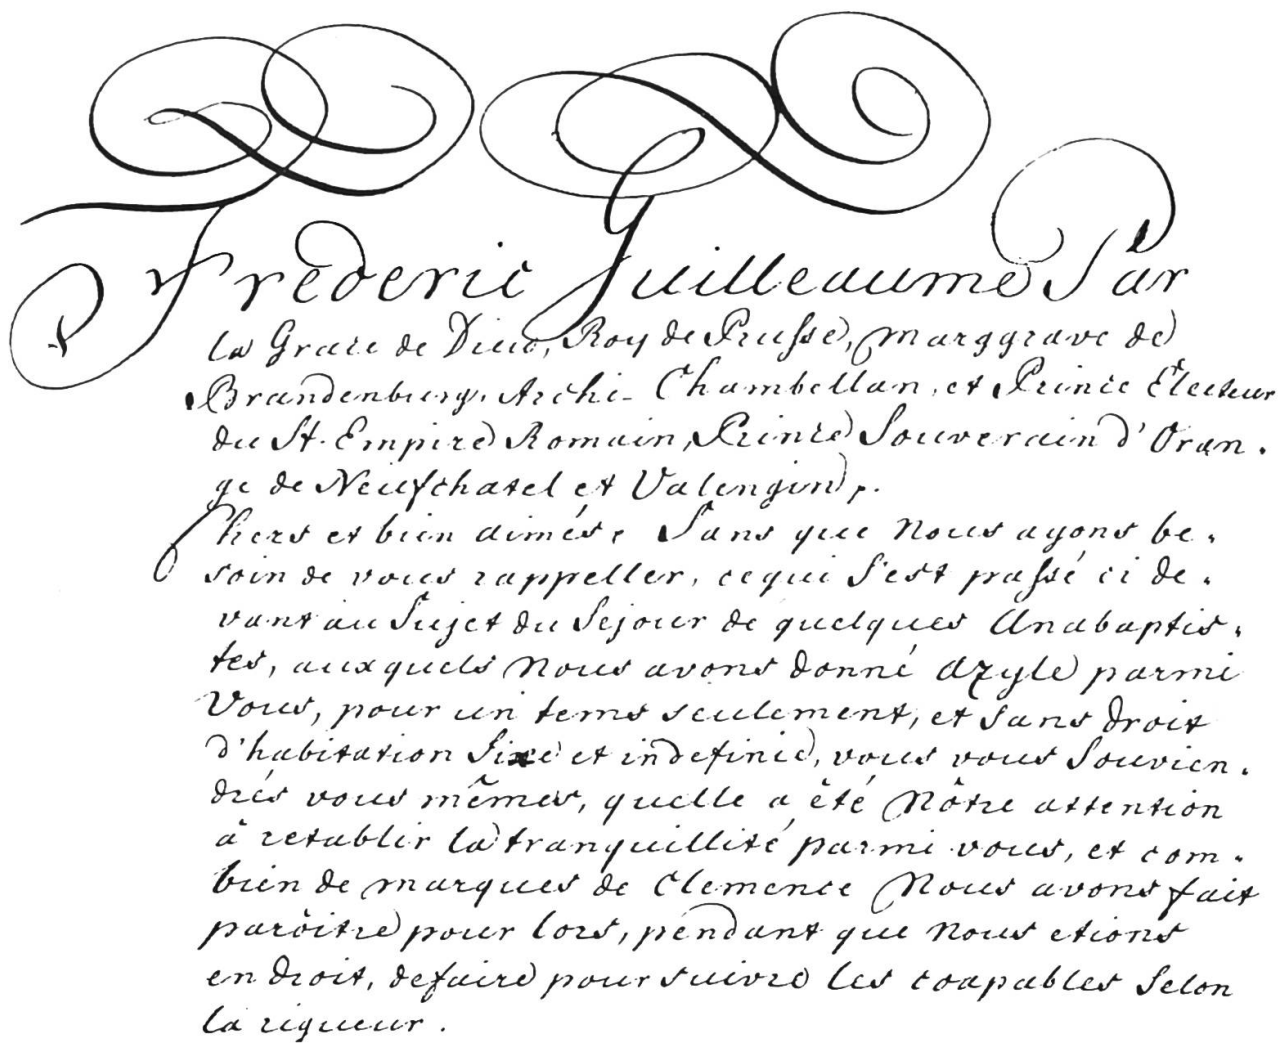 Frederic Guilleaume Par
la Grace de Dieu, Roy de Prusse, Marggrave de
Brandenburg, Archi-Chambellan, et Prince Electeur
du St. Empire Romain, Prince Souverain d'Oran-
ge de Neufchatel et Valengin,.
Chers et bien aimés, Sans que Nous ayons be-
soin de vous rappeller, cequi s'est passé ci de-
vant au Sujet du Sejour de quelques Anabaptis-
tes, auxquels Nous avons donné azyle parmi
Vous, pour un tems seulement, et sans droit
d'habitation fixe et indefinie, vous vous Souvien-
drés vous mêmes, quelle a été Nôtre attention
à retablir la tranquillité parmi vous, et com-
bien de marques de Clemence Nous avons fait
parôitre pour lors, pendant que Nous etions
en droit, defaire poursuivre les coapables Selon
la rigueur.